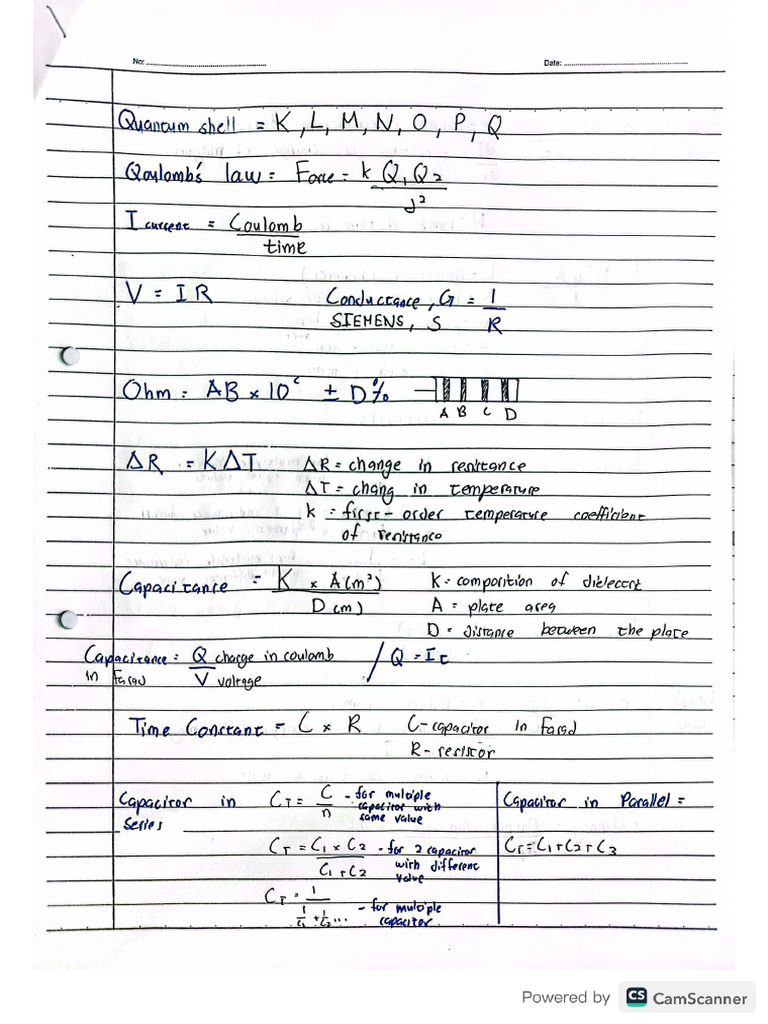 No: ........................ Date: ........................
Quantum shell = K, L, M, N, O, P, Q
Qoulomb's law = Force = k Q1 Q2 / d²
I current = Coulomb / time
V = I R Conductance, G = 1 / R
SIEMENS, S
Ohm = AB × 10^c ± D%
A B C D
ΔR = KΔT ΔR = change in resistance
ΔT = chang in temperature
k = first-order temperature coefficient
of resistance
Capacitance = K × A(m²) / D(m) K = composition of dielectrt
A = plate area
D = distance between the plate
Capacitance = Q charge in coulomb / Q = It
in Farad V voltage
Time Constant = C × R C-capacitor in Farad
R- resistor
Capacitor in series CT = C / n - for multiple capacitor with same value
CT = C1 × C2 / C1 + C2 - for 2 capacitor with different value
CT = 1 / 1/C1 + 1/C2 ... - for multiple capacitor
Capacitor in Parallel =
CT = C1 + C2 + C3
Powered by CS CamScanner